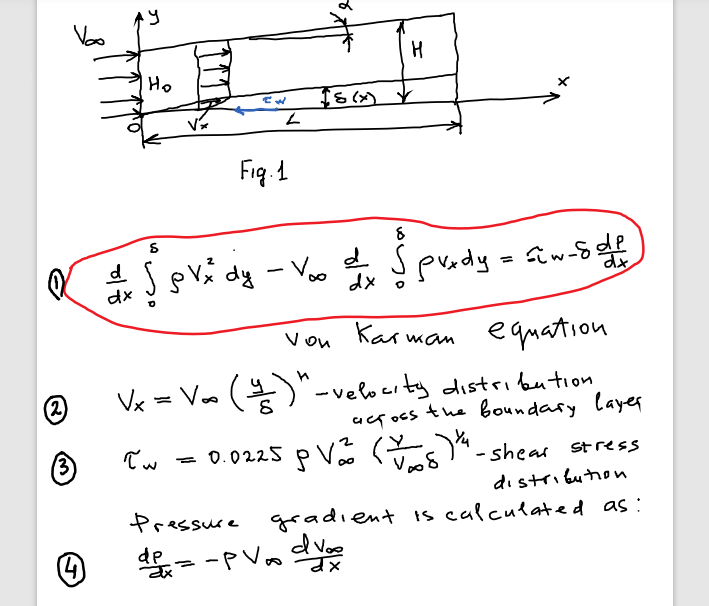 y
α
V∞
H
H₀
x
τw
δ(x)
0
Vx
L
Fig.1
① d/dx ∫₀^δ ρVx² dy - V∞ d/dx ∫₀^δ ρVx dy = τw - δ dp/dx
Von Karman equation
② Vx = V∞ (y/δ)ⁿ - velocity distribution
across the boundary layer
③ τw = 0.0225 ρV∞² (ν/V∞δ)^1/4 - shear stress
distribution
Pressure gradient is calculated as:
④ dp/dx = -ρV∞ dV∞/dx